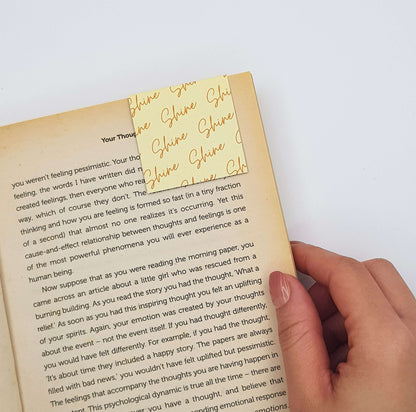 Shine Shine
Shine Shine Shine
Shine Shine Shine
Shine Shine
Your Thoug
you weren't feeling pessimistic. Your
feeling, the words I have written did
created feelings, then everyone who
way, which of course they don't. The
thinking and how you are feeling is formed so fast (in a tiny fraction
of a second) that almost no one realizes it's occurring. Yet this
cause-and-effect relationship between thoughts and feelings is one
of the most powerful phenomena you will ever experience as a
human being.
Now suppose that as you were reading the morning paper, you
came across an article about a little girl who was rescued from a
burning building. As you read the story you had the thought, 'What a
relief.' As soon as you had this inspiring thought you felt an uplifting
of your spirits. Again, your emotion was created by your thoughts
about the event – not the event itself. If you had thought differently,
you would have felt differently. For example, if you had the thought,
'It's about time they included a happy story. The papers are always
filled with bad news,' you wouldn't have felt uplifted but pessimistic.
The feelings that accompany the thoughts you are having happen in
This psychological dynamic is true all the time – there are
you have a thought, and believe that
sending emotional response
emotions.